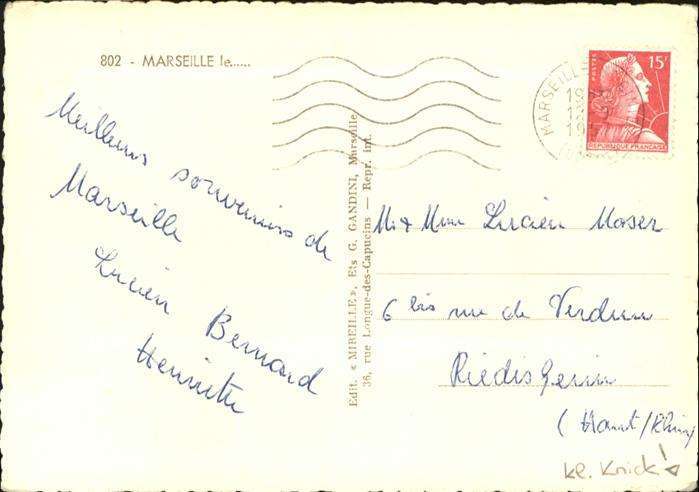 802 - MARSEILLE le......
Meilleurs souvenirs de
Marseille
Lucien Bernard
Henriette
Edit. « MIREILLE », Ets G. GANDINI, Marseille.
36, rue Longue-des-Capucins — Repr. int.
MARSEILLE
POSTES 15F
REPUBLIQUE FRANÇAISE
M. & Mme Lucien Moser
6 bis rue de Verdun
Riedisheim
(Haut/Rhin)
kl. Knick!